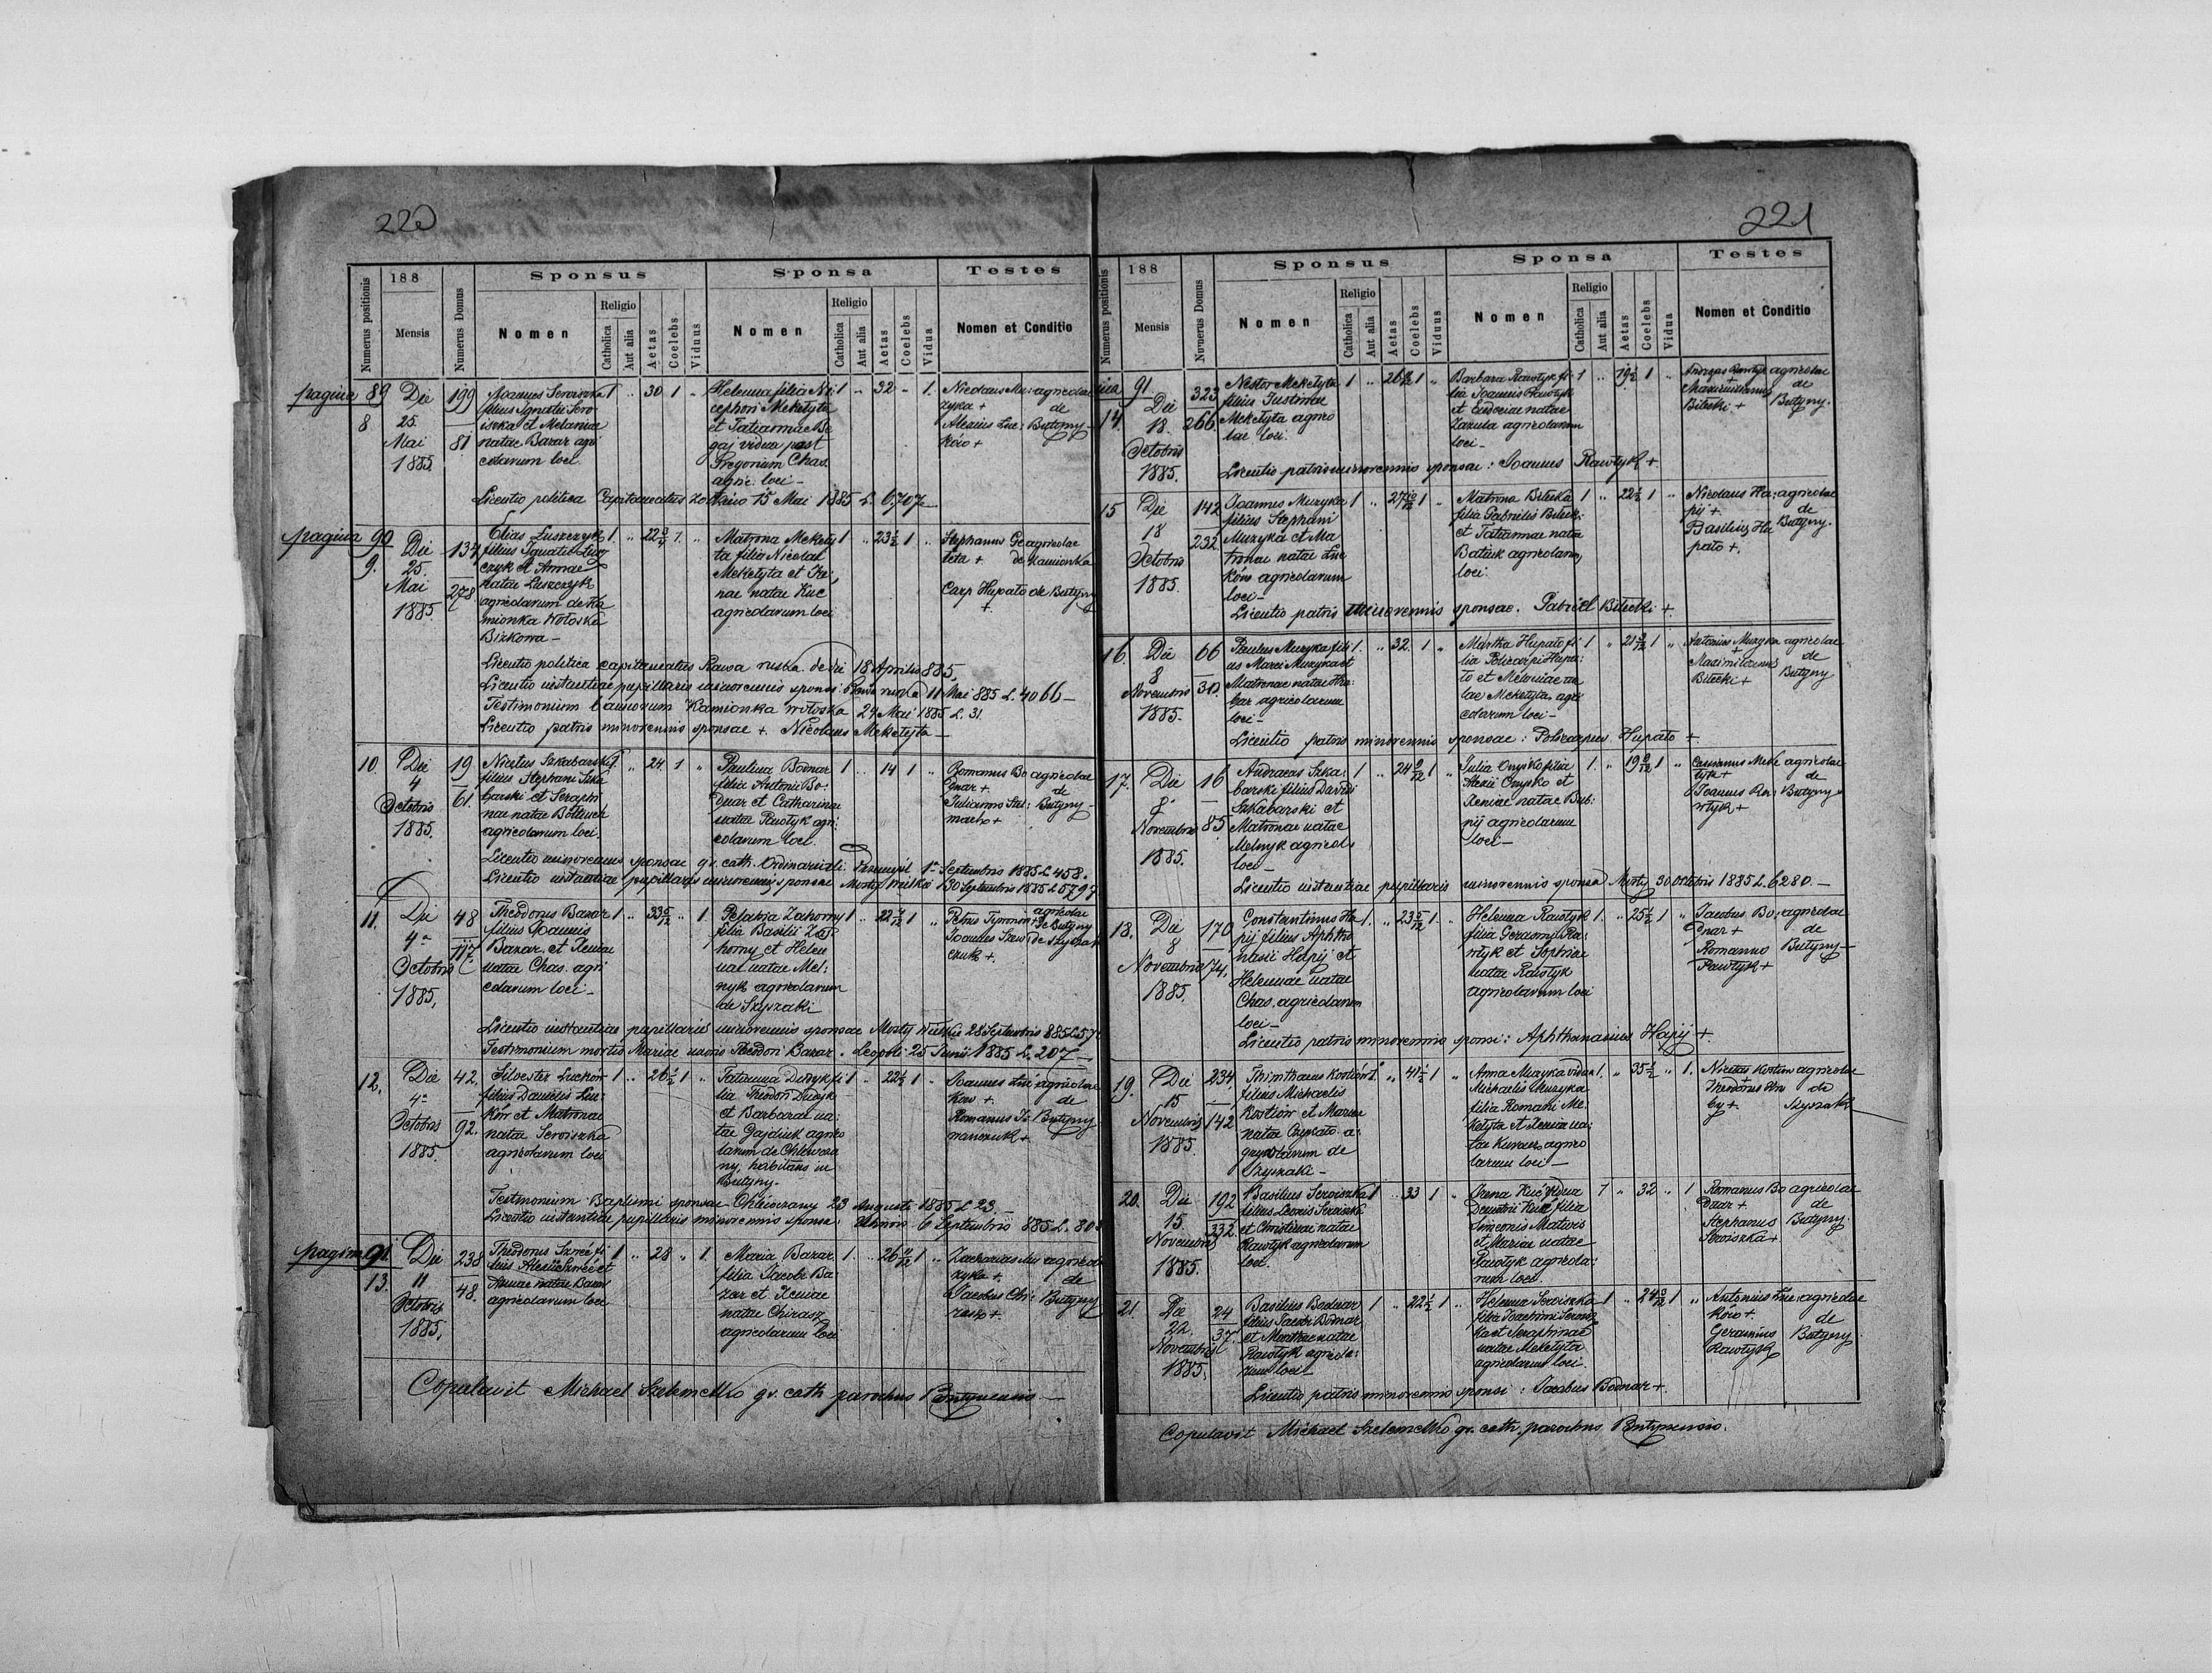 220
Numerus positionis
188
Mensis
Numerus Domus
Sponsus
Nomen
Religio
Catholica
Aut alia
Aetas
Coelebs
Viduus
Sponsa
Nomen
Religio
Catholica
Aut alia
Aetas
Coelebs
Vidua
Testes
Nomen et Conditio
pagina 89
8
Die
25.
Mai
1885.
199
81
Joannes Seroiszka
filius Ignatii Sero
iszka et Melaniae
natae Bazar agri
colarum loci.
1 " 30 1 "
Helena filia Ni
cephori Meketyta
et Tatiannae Be
gaj vidua post
Gregorium Chas.
agric. loci -
1 " 32 " 1.
Nicolaus Mu: agricolae
zyka + de
Alexius Luc: Butyny-
ków +
Licentio politica Capitaneatus 15 Mai 1885 L. 6.707
pagina 90
9.
Die
25.
Mai
1885.
137
278
Elias Luszczyk
filius Ignatii Lusz
czyk et Annae
natae Luszczyk
agricolarum de Ka
mionka Wołoska
Bizkowa -
1. " 22 3/4 1. "
Matrona Mekety
ta filia Nicolai
Meketyta et Ire:
nae natae Kuc
agricolarum loci
1 " 23 1/2 1 "
Stephanus Ge agricolae
leta + de Kamionka
Carp Hupato de Butyny
+
Licentio politica capitaneatus Rawa ruska de die 18 Aprilis 885,
Licentio instantiae pupillaris minorennis sponsi Rawa ruska 11 Mai 885 L. 4066 -
Testimonium bannorum Kamionka wołoska 24 Mai 1885 L. 31.
Licentio patris minorennis sponsae +. Nicolaus Meketyta -
10.
Die
4
Octobris
1885.
19
61.
Nicetus Szkabarski
filius Stephani Szka
barski et Seraphi
nae natae
agricolarum loci.
1. " 24 1 "
Paulina Bodnar
filia Antonii Bo:
dnar et Catharinae
natae Rawłyk agri:
colarum loci.
1 " 14 1 "
Romanus Bo agricolae
dnar + de
Julianus Stel: Butyny -
mach +
Licentio minorennis sponsae gr. cath. Ordinariati: Przemysl 1 Septembris 1885 L. 458.
Licentio instantiae pupillaris minorennis sponsae Mosty wielkie 30 Septembris 1885 L 5797
11.
Die
4
Octobris
1885,
48
117.
Theodorus Bazar
filius Joannis
Bazar et Xeniae
natae Chas. agri
colarum loci -
1 " 33 5/12 " 1.
Pelahia Zahorny
filia Basilii Za
horny et Hele
nae natae Mel:
nyk agricolarum
de Szyszaki
1 " 22 1
agricolae
de Butyny
Joannes Szew de Szyszaki
czuk +.
Licentio instantiae pupillaris minorennis sponsae Mosty wielkie 28 Septembris 885
Testimonium mortis Mariae uxoris Theodori Bazar. Leopoli 25 Junii 1885 L. 207 -
12.
Die
4
Octobris
1885.
42.
92.
Silvester Luckow
filius Danielis Luc:
ków et Matronae
natae Seroiszka
agricolarum loci
1 " 26 1/2 1 "
Tatianna Dudyk fi
lia Theodori Dudyk
et Barbarae na:
tae Gajdiuk agrico
larum de Chlewcza
ny, habitans in
Butyny.
1 " 22 1/2 1 "
Joannes Luc agricolae
kow + de
Romanus Butyny
+
Testimonium Baptismi sponsae Chlewczany 23 Augusti 1885 L 23. -
Licentio instantiae pupillaris minorennis sponsae 6 Septembris 885 L.
pagina 91.
13.
Die
11
Octobris
1885,
238
48.
Theodorus Szreć fi
lius Alexii Szreć et
Annae natae Bazar
agricolarum loci
1 " 28 " 1.
Maria Bazar
filia Jacobi Ba
zar et Xeniae
natae Chirasz
agricolarum loci
1. " 26 1 "
Zacharias Mu agricolae
zyka +. de
Jacobus Chi: Butyny
rasz +.
Copulavit Michael Szelemetko gr. cath parochus Butynensis -
221
Numerus positionis
188
Mensis
Numerus Domus
Sponsus
Nomen
Religio
Catholica
Aut alia
Aetas
Coelebs
Viduus
Sponsa
Nomen
Religio
Catholica
Aut alia
Aetas
Coelebs
Vidua
Testes
Nomen et Conditio
91.
14.
Die
18.
Octobris
1885.
323
266.
Nestor Meketyta
filius Justinae
Meketyta agrico
lae loci.
1 " 26 1 "
Barbara Rawłyk fi
lia Joannis Rawłyk
et Eudociae natae
Zazula agricolarum
loci -
1 " 19 1/2 1 "
Andreas Rawłyk agricolae
+ de
Maximilianus Butyny.
Bilecki +
Licentio patris minorennis sponsae: Joannes Rawłyk +
15
Die
18
Octobris
1885.
142
232
Joannes Muzyka
filius Stephani
Muzyka et Ma
tronae natae Luc
ków agricolarum
loci -
1 " 27 10/12 1 "
Matrona Bilecka
filia Gabrielis Bilecki
et Tatiannae natae
Batiuk agricolarum
loci.
1 " 22 1/2 1 "
Nicolaus Ha: agricolae
pij +. de
Basilius Hu Butyny.
pato +.
Licentio patris minorennis sponsae. Gabriel Bilecki +.
16.
Die
8
Novembris
1885.
66
Paulus Muzyka fili
us Marci Muzyka et
Matronae natae Hra:
bar agricolarum
loci -
1. " 32. 1 "
Martha Hupato fi
lia Policarpi Hupa:
to et Melaniae na
tae Meketyta, agri
colarum loci -
1 " 21 1 "
Antonius Muzyka agricolae
+ de
Maximilianus Butyny
Bilecki +
Licentio patris minorennis sponsae: Policarpus Hupato +
17.
Die
8
Novembris
1885.
16
85
Andreas Szka:
barski filius Davidis
Szkabarski et
Matronae natae
Melnyk agricol.
loci -
1 " 24 1 "
Julia Onyśko filia
Alexii Onyśko et
Xeniae natae Bub:
nij agricolarum
loci -
1. " 19 1 "
Cassianus Meke agricolae
tyta + de
Joannes Ra: Butyny
włyk +
Licentio instantiae pupillaris minorennis sponsae Mosty 30 Octobris 1885 L. 6280. -
18.
Die
8
Novembris
1885.
170
74.
Constantinus Ha
pij filius Aphtho
nasii Hapij et
Helenae natae
Chas. agricolarum
loci -
1. " 23 1. "
Helena Rawłyk
filia Gerasimi Ra:
włyk et Sophiae
natae Rawłyk
agricolarum loci
1. " 25 1/2 1 "
Jacobus Bo: agricolae
dnar + de
Romanus Butyny -
Rawłyk +
Licentio patris minorennis sponsi: Aphthanasius Hapij +
19.
Die
15
Novembris
1885.
234,
142
Thimtheus Kostiów
filius Michaelis
Kostiów et Mariae
natae Czypato a:
gricolarum de
Szyszaki -
1. " 41 1/2 1 "
Anna Muzyka vidua
Michaelis Muzyka
filia Romani Me:
ketyta et Xeniae na:
tae Kuracz agrico
larum loci -
1. " 35 1/2 " 1.
Nicetus Kostiow agricolae
+ de
Theodorus Szyszaki
+.
20.
Die
15.
Novembris
1885.
192
332.
Basilius Seroiszka
filius Leonis Seroiszka
et Christinae natae
Rawłyk agricolarum
loci.
1 " 33 1 "
Irena Kuć vidua
Demetrii Kuć filia
Simeonis Matwis
et Mariae natae
Rawłyk agricola:
rum loci.
1 " 32 " 1
Romanus Bo agricolae
dnar + de
Stephanus Butyny.
Seroiszka +
21.
Die
22.
Novembris
1885,
24
37.
Basilius Bodnar
filius Jacobi Bodnar
et Marthae natae
Rawłyk agricola:
rum loci
1 " 22 1/2 1 "
Helena Seroiszka
filia Joachimi Seroisz
ka et Seraphinae
natae Meketyta
agricolarum loci.
1 " 24 1 "
Antonius Luc: agricolae
ków +. de
Gerasimus Butyny
Rawłyk
Licentio patris minorennis sponsi: Jacobus Bodnar +.
Copulavit Michael Szelemetko gr. cath. parochus Butynensis.